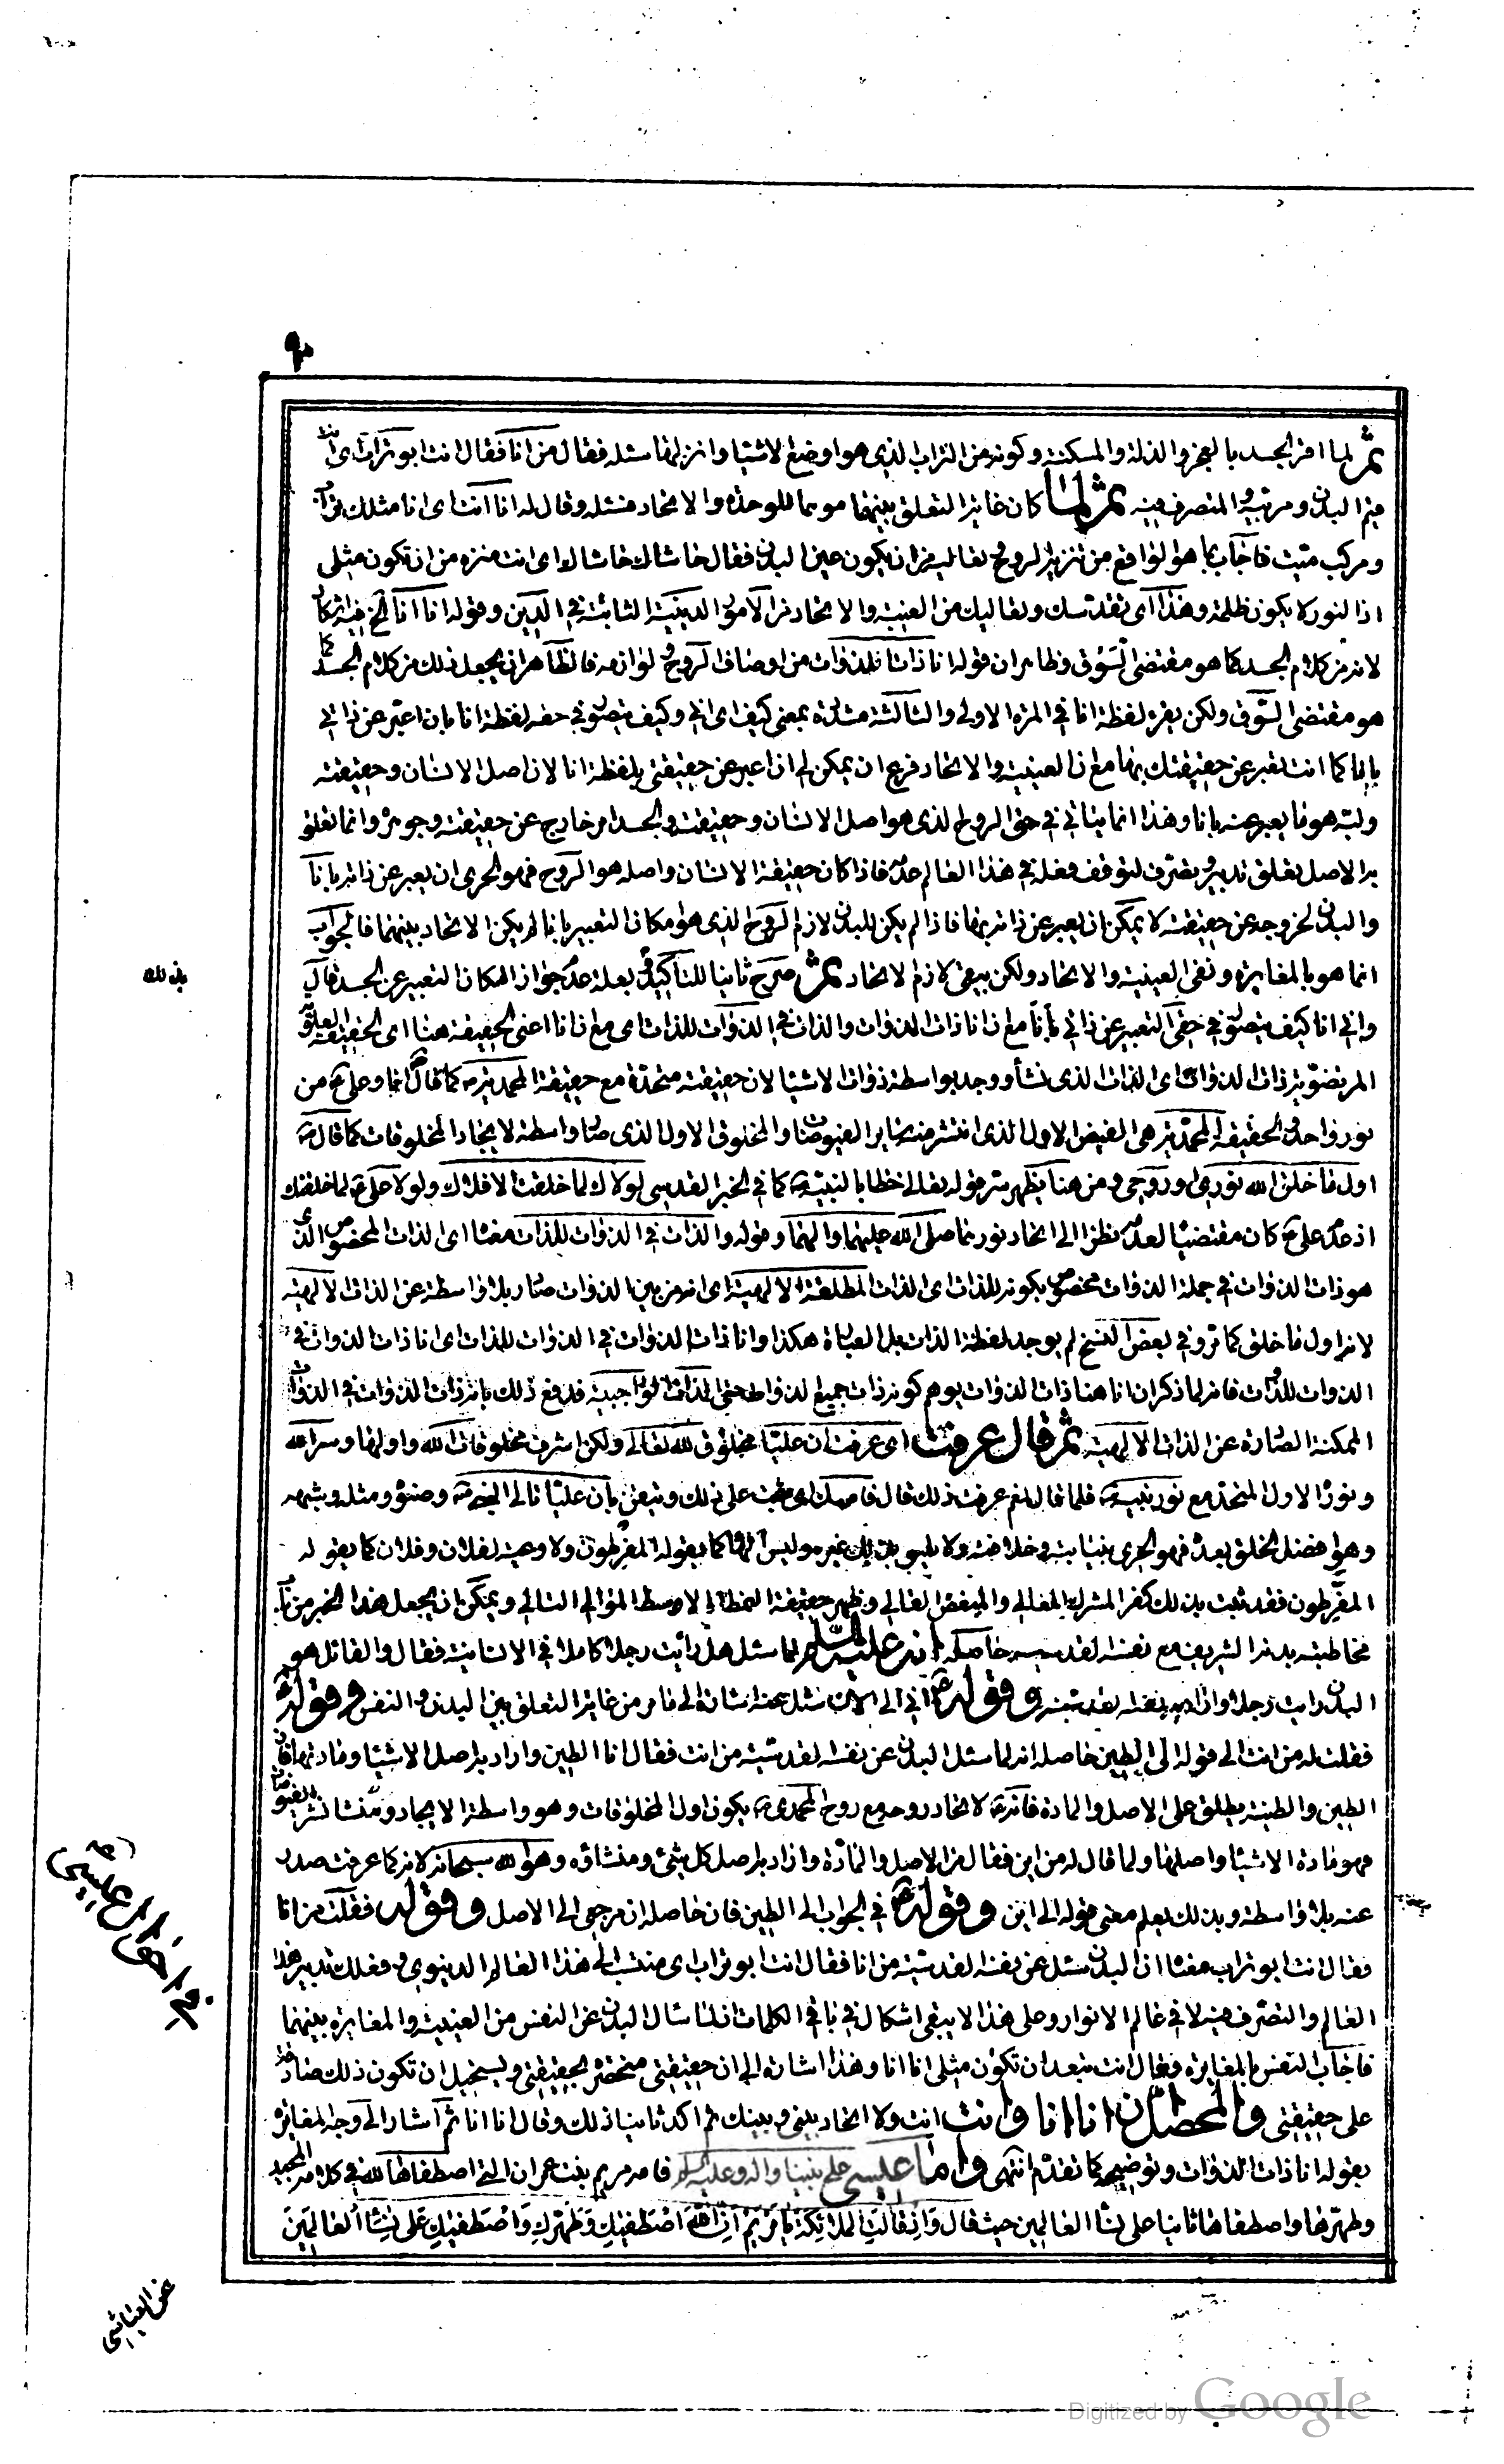 ثم لما اقر الجسد بالعجز والذلة والمسكنة وكونه من التراب الذى هو اوضع الاشيا وانزلها سئله فقال من انا فقال انت ابو تراب اى انت
قيم البدن ومربيه والمتصرف فيه ثم لما كان غاية التعلق بينهما موهما للوحدة والاتحاد فسئله وقال له انا انت اى انا مثلك
ومركب ميت فاجاب بما هو الواقع من تنزيه الروح تعاليه من ان يكون عين البدن فقال حاشاك حاشاك اى انت منزه من ان تكون مثلى
اذ النور لا يكون ظلمة وهذا اى تقدسك وتعاليك من العينية والاتحاد من الامور الدينية الثابتة فى الدين وقوله انا انا الخ فيه اشكال
لانه من كلام الجسد كما هو مقتضى السوق وظاهر ان قوله انا ذات الذوات من اوصاف الروح ولوازمه فالظاهر ان يجعل ذلك من كلام الجسد كما
هو مقتضى السوق ولكن يقرء لفظة انا فى المرة الاولى والثالثة مشددة بمعنى كيف اى انى وكيف يتصور فى حقه لفظة انا بان اعبر عن ذاتى
بانا كما انت تعبر عن حقيقتك بها مع ان العينية والاتحاد فرع ان يمكن لى ان اعبر عن حقيقتى بلفظة انا لان اصل الانسان وحقيقته
ولبه هو ما يعبر عنه بانا وهذا انما يتاتى فى حق الروح الذى هو اصل الانسان وحقيقته والجسد امر خارج عن حقيقته وجوهره وانما تعلق
به الاصل تعلق تدبير وتصرف لتوقف فعله فى هذا العالم عليه فاذا كان حقيقة الانسان واصله هو الروح فهو الحرى ان يعبر عن ذاته بانا
والبدن لخروجه عن حقيقته لا يمكن ان يعبر عن ذاته بها فاذا لم يكن للبدن لازم الروح الذى هو امكان التعبير بانا لم يكن الاتحاد بينهما فالجواب
انما هو بالمغايرة ونفى العينية والاتحاد ولكن بنفى لازم الاتحاد ثم صرح ثانيا للتاكيد بعلة عدم جواز امكان التعبير عن الجسد فقال
وانى انا كيف يتصور فى حقى التعبير عن ذاتى بانا مع ان انا ذات الذوات والذات فى الذوات للذات اى مع ان انا اعنى الحقيقة هنا اى الحقيقة العلوية
المرتضوية ذات الذوات اى الذات الذى نشأ ووجد بواسطة ذوات الاشيا لان حقيقته متحدة مع حقيقة المحمدية كما قال انا وعلى من
نور واحد والحقيقة المحمدية هى الفيض الاول الذى انتشر منه ساير الفيوضات والمخلوق الاول الذى صار واسطة لايجاد المخلوقات كما قال
اول ما خلق الله نورى او روحى ومن هنا يظهر سر قوله تعالى خطابا لنبيه كما فى الخبر القدسى لولاك لما خلقت الافلاك ولولا على لما خلقتك
اذ عدم على كان مقتضيا لعدمه نظرا الى اتحاد نورهما صلى الله عليهما والهما وقوله والذات فى الذوات للذات معناه اى الذات المخصوص الذى
هو ذات الذوات فى جملة الذوات مخصوص بكونه للذات اى الذات المطلقة الالهية اى انه من بين الذوات صار بلا واسطة عن الذات الالهية
لانه اول ما خلق كما مر وفى بعض النسخ لم يوجد لفظة الذات بل العبارة هكذا وانا ذات الذوات فى الذوات للذات اى انا ذات الذوات فى
الذوات للذات فانه لما ذكر ان انا هنا ذات الذوات يوهم كونه ذات جميع الذوات حتى الذات الواجبية فدفع ذلك بانه ذات الذوات فى الذوات
الممكنة الصادرة عن الذات الالهية ثم قال عرفت اى عرفت ان عليا مخلوق لله تعالى ولكن اشرف مخلوقات الله واولها وسر الله
ونوره الاول المتحد مع نور نبيه فلما قال نعم عرفت ذلك قال فامسك اى فثبت على ذلك وتيقن بان عليا تالى النبى وصنوه ومثله وشبهه
وهو افضل الخلق بعده فهو الحرى بنيابته وخلافته ولا يليق بذلك غيره وليس الها كما يقوله المفرطون ولا رعية لفلان وفلان كما يقوله
المفرطون فقد ثبت بذلك كفر المشرك المغالى والمبغض القالى وظهر حقيقة النمط الاوسط الموالى التالى ويمكن ان يجعل هذا الخبر من باب
مخاطبة بدنه الشريف مع نفسه القدسيه حاصله انه عليه السلم لما سئل هل رأيت رجلا كاملا فى الانسانية فقال والقائل هو
البدن رايت رجلا واراد به نفسه القدسية وقوله انى الى الان سئل عنه اشارة الى ما مر من غاية التعلق بين البدن والنفس وقوله
فقلت له من انت الى قوله الى الطين حاصله انه لما سئل البدن عن نفسه القدسية من انت فقال انا الطين واراد به اصل الاشيا ومادتها فان
الطين والطينة يطلق على الاصل والمادة فانه لاتحاد روحه مع روح المحمدى يكون اول المخلوقات وهو واسطة الايجاد ومنشا نشر الفيوضات
فهو مادة الاشيا واصلها ولما قال له من اين فقال من الاصل والمادة واراد به اصل كل شئ ومنشاؤه وهو الله سبحانه لانه كما عرفت صدر
عنه بلا واسطة وبذلك يعلم معنى قوله الى اين وقوله فى الجواب الى الطين فان حاصله ان مرجعى الى الاصل وقوله فقلت من انا
فقال انت ابو تراب معناه ان البدن سئل عن نفسه القدسية من انا فقال انت ابو تراب اى منتسب الى هذا العالم الدنيوى وفعلك تدبير هذا
العالم والتصرف فيه لا فى عالم الانوار وعلى هذا لا يبقى اشكال فى باقى الكلمات اذ لما سال البدن عن النفس من العينية والمغايرة بينهما
فاجاب النفس بالمغايرة وقال انت تبعد ان تكون مثلى انا انا وهذا اشارة الى ان حقيقتى منحصرة بحقيقتى ويستحيل ان تكون ذلك صادقا
على حقيقتى والمحصل ان انا انا وانت انت ولا اتحاد بينى وبينك ثم اكد ثانيا ذلك وقال انا انا ثم اشار الى وجه المغايرة
بقوله انا ذات الذوات وتوضيحه كما تقدم انتهى واما عيسى على نبينا واله وعليه السلم فامه مريم بنت عمران التى اصطفاها الله فى كلامه المجيد
وطهرها واصطفاها ثانيا على نسا العالمين حيث قال وَاِذْ قالَتِ الملائِكَةُ يا مَرْيَمُ اِنَّ اللهَ اصْطَفيكِ وَطَهَّرَكِ وَاصْطَفيكِ عَلى نِسآءِ العالَمينَ
عن العياشى
Digitized by Google